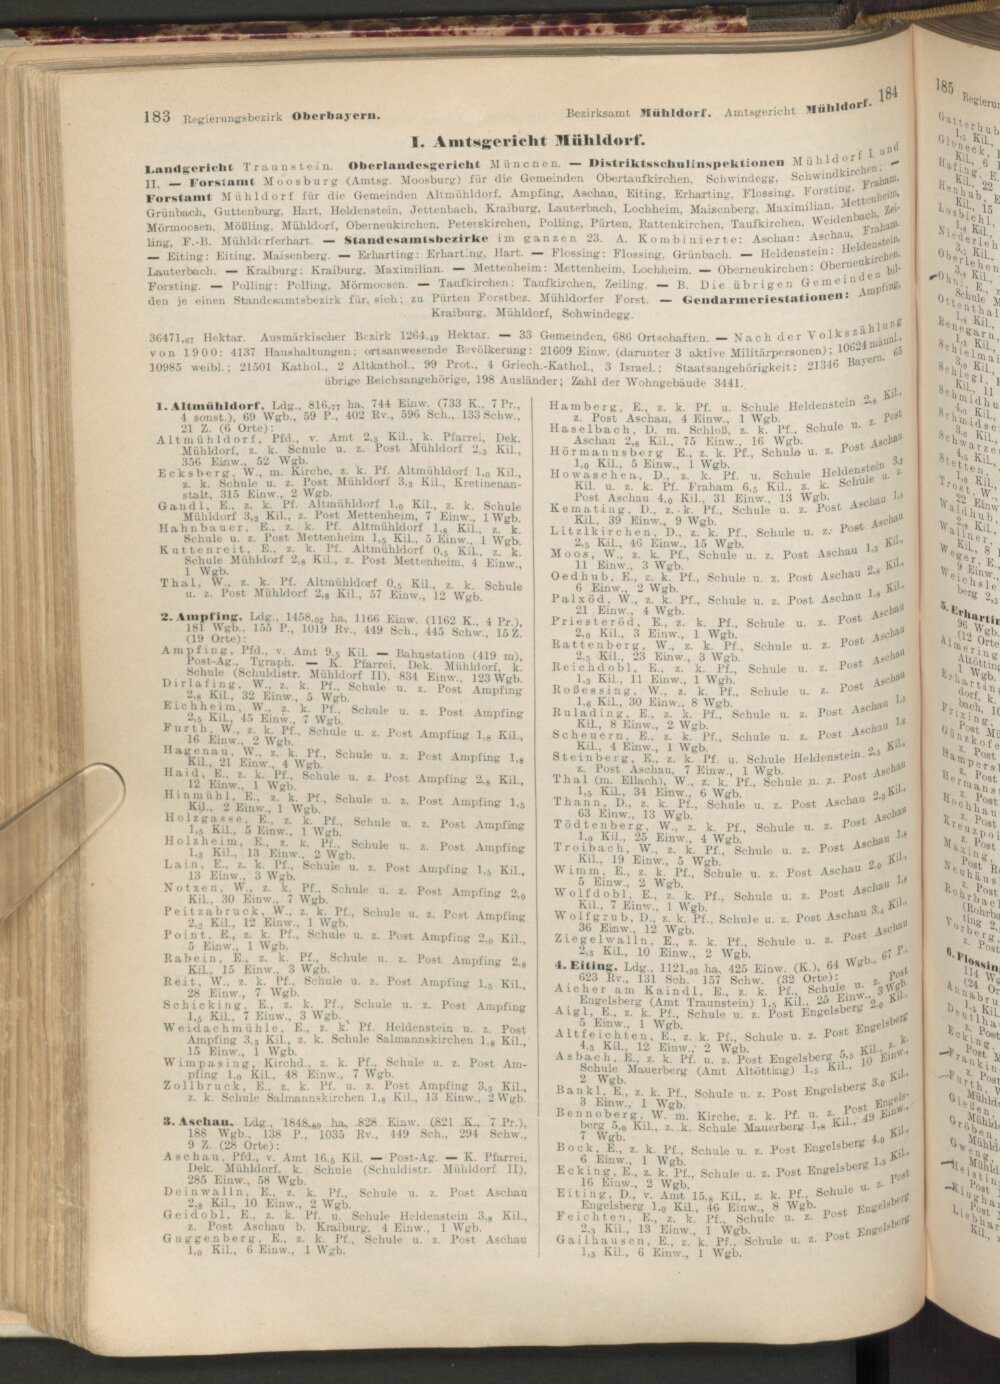 183 Regierungsbezirk Oberbayern.
Bezirksamt Mühldorf. Amtsgericht Mühldorf. 184
I. Amtsgericht Mühldorf.
Landgericht Traunstein. Oberlandesgericht München. — Distriktsschulinspektionen Mühldorf I und
II. — Forstamt Moosburg (Amtsg. Moosburg) für die Gemeinden Obertaufkirchen, Schwindegg, Schwindkirchen: —
Forstamt Mühldorf für die Gemeinden Altmühldorf, Ampfing, Aschau, Eiting, Erharting, Flossing, Forsting, Fraham,
Grünbach, Guttenburg, Hart, Heldenstein, Jettenbach, Kraiburg, Lauterbach, Lochheim, Maisenberg, Maximilian, Mettenheim,
Mörmoosen, Mößling, Mühldorf, Oberneukirchen, Peterskirchen, Polling, Pürten, Rattenkirchen, Taufkirchen, Weidenbach, Zei-
ling, F.-B. Mühldorferhart. — Standesamtsbezirke im ganzen 23. A. Kombinierte: Aschau: Aschau, Fraham.
— Eiting: Eiting, Maisenberg. — Erharting: Erharting, Hart. — Flossing: Flossing, Grünbach. — Heldenstein: Heldenstein,
Lauterbach. — Kraiburg: Kraiburg, Maximilian. — Mettenheim: Mettenheim, Lochheim. — Oberneukirchen: Oberneukirchen,
Forsting. — Polling: Polling, Mörmoosen. — Taufkirchen: Taufkirchen, Zeiling. — B. Die übrigen Gemeinden bil-
den je einen Standesamtsbezirk für sich; zu Pürten Forstbez. Mühldorfer Forst. — Gendarmeriestationen: Ampfing,
Kraiburg, Mühldorf, Schwindegg.
36471,67 Hektar. Ausmärkischer Bezirk 1264,49 Hektar. — 33 Gemeinden, 686 Ortschaften. — Nach der Volkszählung
von 1900: 4137 Haushaltungen; ortsanwesende Bevölkerung: 21609 Einw. (darunter 3 aktive Militärpersonen); 10624 männl.,
10985 weibl.; 21501 Kathol., 2 Altkathol., 99 Prot., 4 Griech.-Kathol., 3 Israel.; Staatsangehörigkeit: 21346 Bayern, 65
übrige Reichsangehörige, 198 Ausländer; Zahl der Wohngebäude 3441.
1. Altmühldorf, Ldg., 816,77 ha, 744 Einw. (733 K., 7 Pr.,
4 sonst.), 69 Wgb., 59 P., 402 Rv., 596 Sch., 133 Schw.,
21 Z. (6 Orte):
Altmühldorf, Pfd., v. Amt 2,3 Kil., k. Pfarrei, Dek.
Mühldorf, z. k. Schule u. z. Post Mühldorf 2,5 Kil.,
356 Einw., 52 Wgb.
Ecksberg, W., m. Kirche, z. k. Pf. Altmühldorf 1,0 Kil.,
z. k. Schule u. z. Post Mühldorf 3,3 Kil., Kretinenan-
stalt, 315 Einw., 2 Wgb.
Gandl, E., z. k. Pf. Altmühldorf 1,0 Kil., z. k. Schule
Mühldorf 3,3 Kil., z. Post Mettenheim, 7 Einw., 1 Wgb.
Hahnbauer, E., z. k. Pf. Altmühldorf 1,8 Kil., z. k.
Schule u. z. Post Mettenheim 1,5 Kil., 5 Einw., 1 Wgb.
Kuttenreit, E., z. k. Pf. Altmühldorf 0,5 Kil., z. k.
Schule Mühldorf 2,8 Kil., z. Post Mettenheim, 4 Einw.,
1 Wgb.
Thal, W., z. k. Pf. Altmühldorf 0,5 Kil., z. k. Schule
u. z. Post Mühldorf 2,8 Kil., 57 Einw., 12 Wgb.
2. Ampfing, Ldg., 1458,02 ha, 1166 Einw. (1162 K., 4 Pr.),
181 Wgb., 155 P., 1019 Rv., 449 Sch., 445 Schw., 15 Z.
(19 Orte):
Ampfing, Pfd., v. Amt 9,5 Kil. — Bahnstation (419 m),
Post-Ag., Tgraph. — K. Pfarrei, Dek. Mühldorf, k.
Schule (Schuldistr. Mühldorf II), 834 Einw., 123 Wgb.
Dirlafing, W., z. k. Pf., Schule u. z. Post Ampfing
2,8 Kil., 32 Einw., 5 Wgb.
Eichheim, W., z. k. Pf., Schule u. z. Post Ampfing
2,5 Kil., 45 Einw., 7 Wgb.
Furth, W., z. k. Pf., Schule u. z. Post Ampfing 1,8 Kil.,
16 Einw., 2 Wgb.
Hagenau, W., z. k. Pf., Schule u. z. Post Ampfing 1,8
Kil., 21 Einw., 4 Wgb.
Haid, E., z. k. Pf., Schule u. z. Post Ampfing 2,8 Kil.,
12 Einw., 1 Wgb.
Hinmühl, E., z. k. Pf., Schule u. z. Post Ampfing 1,5
Kil., 2 Einw., 1 Wgb.
Holzgasse, E., z. k. Pf., Schule u. z. Post Ampfing
1,5 Kil., 5 Einw., 1 Wgb.
Holzheim, E., z. k. Pf., Schule u. z. Post Ampfing
1,3 Kil., 13 Einw., 2 Wgb.
Lain, E., z. k. Pf., Schule u. z. Post Ampfing 1,5 Kil.,
13 Einw., 3 Wgb.
Notzen, W., z. k. Pf., Schule u. z. Post Ampfing 2,0
Kil., 30 Einw., 7 Wgb.
Peitzabruck, W., z. k. Pf., Schule u. z. Post Ampfing
2,2 Kil., 12 Einw., 1 Wgb.
Point, E., z. k. Pf., Schule u. z. Post Ampfing 2,0 Kil.,
5 Einw., 1 Wgb.
Rabein, E., z. k. Pf., Schule u. z. Post Ampfing 2,8
Kil., 15 Einw., 3 Wgb.
Reit, W., z. k. Pf., Schule u. z. Post Ampfing 1,5 Kil.,
28 Einw., 7 Wgb.
Schicking, E., z. k. Pf., Schule u. z. Post Ampfing
1,5 Kil., 7 Einw., 3 Wgb.
Weidachmühle, E., z. k. Pf. Heldenstein u. z. Post
Ampfing 3,3 Kil., z. k. Schule Salmannskirchen 1,8 Kil.,
15 Einw., 1 Wgb.
Wimpasing, Kirchd., z. k. Pf., Schule u. z. Post Am-
pfing 1,0 Kil., 48 Einw., 7 Wgb.
Zollbruck, E., z. k. Pf. u. z. Post Ampfing 3,5 Kil.,
z. k. Schule Salmannskirchen 1,8 Kil., 13 Einw., 2 Wgb.
3. Aschau, Ldg., 1848,89 ha, 828 Einw. (821 K., 7 Pr.),
188 Wgb., 138 P., 1035 Rv., 449 Sch., 294 Schw.,
9 Z. (28 Orte):
Aschau, Pfd., v. Amt 16,5 Kil. — Post-Ag. — K. Pfarrei,
Dek. Mühldorf, k. Schule (Schuldistr. Mühldorf II),
285 Einw., 58 Wgb.
Deinwalln, E., z. k. Pf., Schule u. z. Post Aschau
2,8 Kil., 10 Einw., 2 Wgb.
Geidobl, E., z. k. Pf. u. Schule Heldenstein 3,8 Kil.,
z. Post Aschau b. Kraiburg, 4 Einw., 1 Wgb.
Guggenberg, E., z. k. Pf., Schule u. z. Post Aschau
1,0 Kil., 6 Einw., 1 Wgb.
Hamberg, E., z. k. Pf. u. Schule Heldenstein 2,8 Kil.,
z. Post Aschau, 4 Einw., 1 Wgb.
Haselbach, D. m. Schloß, z. k. Pf., Schule u. z. Post
Aschau 2,8 Kil., 75 Einw., 16 Wgb.
Hörmannsberg E., z. k. Pf., Schule u. z. Post Aschau
1,0 Kil., 5 Einw., 1 Wgb.
Howaschen, D., z. k. Pf. u. Schule Heldenstein 3,2
Kil. u. z. k. Pf. Fraham 6,5 Kil., z. k. Schule u. z.
Post Aschau 4,0 Kil., 31 Einw., 13 Wgb.
Kemating, D., z. k. Pf., Schule u. z. Post Aschau 1,5
Kil., 39 Einw., 9 Wgb.
Litzlkirchen, D., z. k. Pf., Schule u. z. Post Aschau
2,5 Kil., 46 Einw., 15 Wgb.
Moos, W., z. k. Pf., Schule u. z. Post Aschau 1,5 Kil.,
11 Einw., 3 Wgb.
Oedhub, E., z. k. Pf., Schule u. z. Post Aschau 2,8 Kil.,
6 Einw., 2 Wgb.
Palxöd, W., z. k. Pf., Schule u. z. Post Aschau 1,8 Kil.,
21 Einw., 4 Wgb.
Priesteröd, E., z. k. Pf., Schule u. z. Post Aschau
2,0 Kil., 3 Einw., 1 Wgb.
Rattenberg, W., z. k. Pf., Schule u. z. Post Aschau
2,5 Kil., 23 Einw., 3 Wgb.
Reichdobl, E., z. k. Pf., Schule u. z. Post Aschau
1,3 Kil., 11 Einw., 1 Wgb.
Roßessing, W., z. k. Pf., Schule u. z. Post Aschau
1,6 Kil., 30 Einw., 8 Wgb.
Rulading, E., z. k. Pf., Schule u. z. Post Aschau 1,5
Kil., 8 Einw., 2 Wgb.
Scheuern, E., z. k. Pf., Schule u. z. Post Aschau 1,6
Kil., 4 Einw., 1 Wgb.
Steinberg, E., z. k. Pf. u. Schule Heldenstein 2,5 Kil.,
z. Post Aschau, 7 Einw., 1 Wgb.
Thal (m. Ellach), W., z. k. Pf., Schule u. z. Post Aschau
1,5 Kil., 34 Einw., 6 Wgb.
Thann, D., z. k. Pf., Schule u. z. Post Aschau 2,0 Kil.,
63 Einw., 13 Wgb.
Tödtenberg, W., z. k. Pf., Schule u. z. Post Aschau
1,0 Kil., 25 Einw., 4 Wgb.
Troibach, W., z. k. Pf., Schule u. z. Post Aschau 1,8
Kil., 19 Einw., 5 Wgb.
Wimm, E., z. k. Pf., Schule u. z. Post Aschau 2,0 Kil.,
5 Einw., 2 Wgb.
Wolfdobl, E., z. k. Pf., Schule u. z. Post Aschau 1,8
Kil., 7 Einw., 1 Wgb.
Wolfgrub, D., z. k. Pf., Schule u. z. Post Aschau 3,4 Kil.,
36 Einw., 12 Wgb.
Ziegelwalln, E., z. k. Pf., Schule u. z. Post Aschau
2,3 Kil., 10 Einw., 2 Wgb.
4. Eiting, Ldg., 1121,93 ha, 425 Einw. (K.), 64 Wgb., 67 P.,
623 Rv., 131 Sch., 157 Schw. (32 Orte):
Aicher am Kaindl, E., z. k. Pf., Schule u. z. Post
Engelsberg (Amt Traunstein) 1,5 Kil., 25 Einw., 3 Wgb.
Aigl, E., z. k. Pf., Schule u. z. Post Engelsberg 2,0 Kil.,
5 Einw., 1 Wgb.
Altfeichten, E., z. k. Pf., Schule u. z. Post Engelsberg
4,5 Kil., 12 Einw., 2 Wgb.
Asbach, E., z. k. Pf. u. z. Post Engelsberg 5,5 Kil., z. k.
Schule Mauerberg (Amt Altötting) 1,5 Kil., 10 Einw.,
2 Wgb.
Bankl, E., z. k. Pf., Schule u. z. Post Engelsberg 3,0 Kil.,
3 Einw., 1 Wgb.
Bennoberg, W. m. Kirche, z. k. Pf. u. z. Post Engels-
berg 5,0 Kil., z. k. Schule Mauerberg 1,8 Kil., 49 Einw.,
7 Wgb.
Bock, E., z. k. Pf., Schule u. z. Post Engelsberg 4,0 Kil.,
6 Einw., 1 Wgb.
Ecking, E., z. k. Pf., Schule u. z. Post Engelsberg 1,5 Kil.,
16 Einw., 2 Wgb.
Eiting, D., v. Amt 15,8 Kil., z. k. Pf., Schule u. z. Post
Engelsberg 1,0 Kil., 46 Einw., 8 Wgb.
Feichten, E., z. k. Pf., Schule u. z. Post Engelsberg
2,5 Kil., 13 Einw., 1 Wgb.
Gailhausen, E., z. k. Pf., Schule u. z. Post Engelsberg
1,3 Kil., 6 Einw., 1 Wgb.
185
5. Erharting
6. Flossing